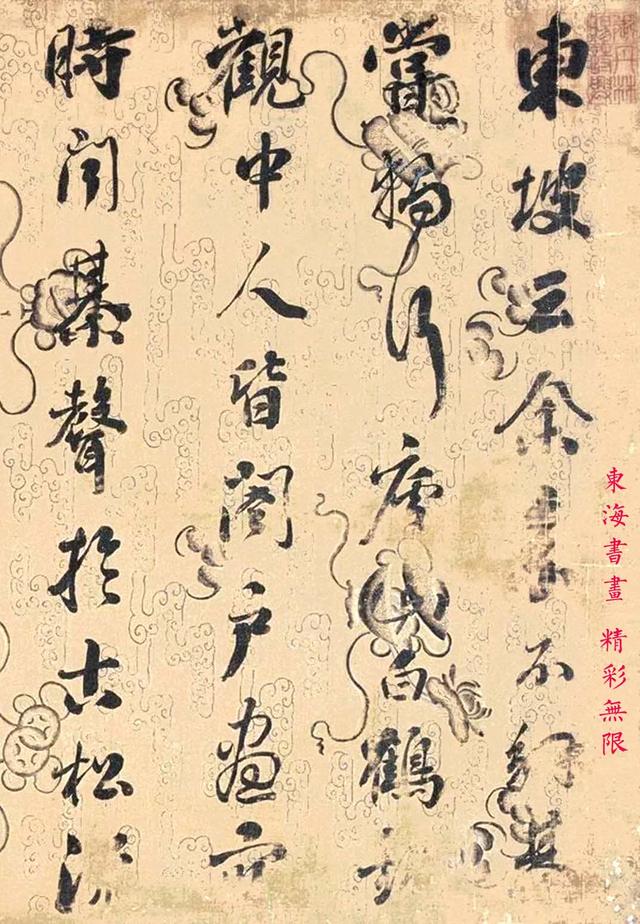 東坡云余素不解棊
嘗獨行廬山白鶴觀
觀中人皆闔戶晝寢
時聞棊聲於古松流
東海書畫 精彩無限